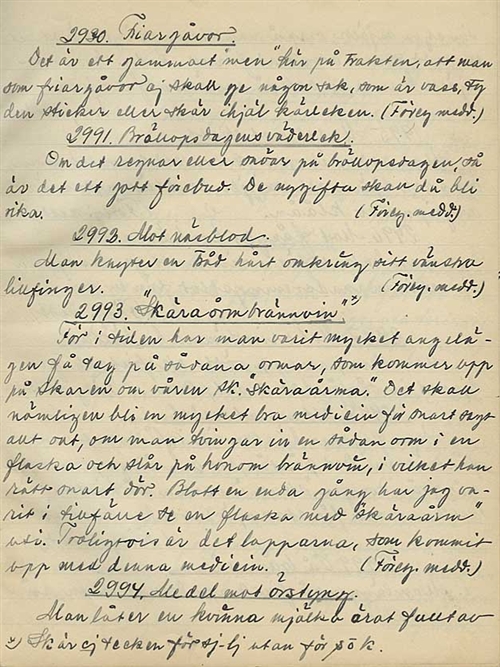 2990. Friargåvor.
Det är ett gammalt "men" här på trakten, att man
som friargåvor ej skall ge någon sak, som är vass, ty
den sticker eller skär ihjäl kärleken. (Föreg. medd.)
2991. Bröllopsdagens väderlek.
Om det regnar eller snöar på bröllopsdagen, så
är det ett gott förebud. De nygifta skall då bli
rika. (Föreg. medd.)
2993. Mot näsblod.
Man knyter en tråd hårt omkring sitt vänstra
lillfinger. (Föreg. medd.)
2993. "Skäraormbrännvin". *)
För i tiden har man varit mycket angelä-
gen få tag på sådana ormar, som kommer upp
på skaren om våren sk. "Skäraårma." Det skall
nämligen bli en mycket bra medicin för snart sagt
allt ont, om man tvingar in en sådan orm i en
flaska och slår på honom brännvin, i vilket han
rätt snart dör. Blott en enda gång har jag va-
rit i tillfälle se en flaska med "skäraårm"
uti. Troligtvis är det lapparna, som kommit
upp med denna medicin. (Föreg. medd.)
2994. Medel mot örstyng.
Man låter en kvinna mjölka örat fullt av
*) Skär ej tecken för sj-lj utan för sk.